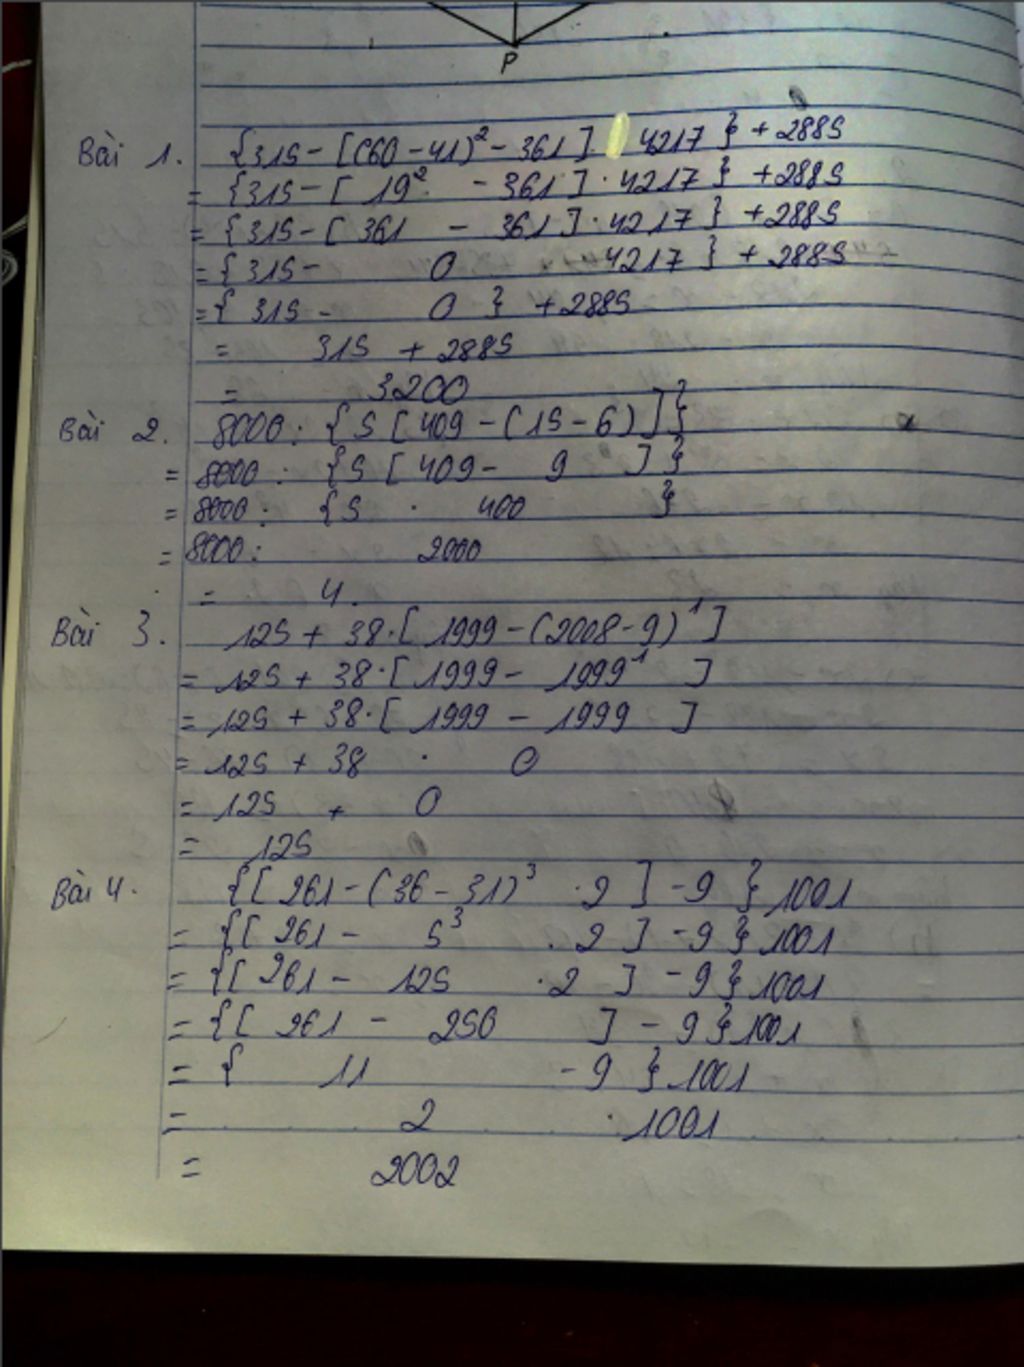 P
Bài 1. {315 - [(60 - 41)² - 361] 4217 } + 2885
= {315 - [ 19² - 361 ] · 4217 } + 2885
= { 315 - [ 361 - 361 ] · 4217 } + 2885
= { 315 - 0 4217 } + 2885
= { 315 - 0 } + 2885
= 315 + 2885
= 3200
Bài 2. 8000 : { 5 [ 409 - ( 15 - 6 ) ] }
= 8000 : { 5 [ 409 - 9 ] }
= 8000 : { 5 · 400 }
= 8000 : 2000
= 4.
Bài 3. 125 + 38 · [ 1999 - (2008 - 9)¹ ]
= 125 + 38 · [ 1999 - 1999¹ ]
= 125 + 38 · [ 1999 - 1999 ]
= 125 + 38 · 0
= 125 + 0
= 125
Bài 4. { [ 261 - (36 - 31)³ · 2 ] - 9 } 1001
= { [ 261 - 5³ . 2 ] - 9 } 1001
= { [ 261 - 125 · 2 ] - 9 } 1001
= { [ 261 - 250 ] - 9 } 1001
= { 11 - 9 } 1001
= 2 · 1001
= 2002